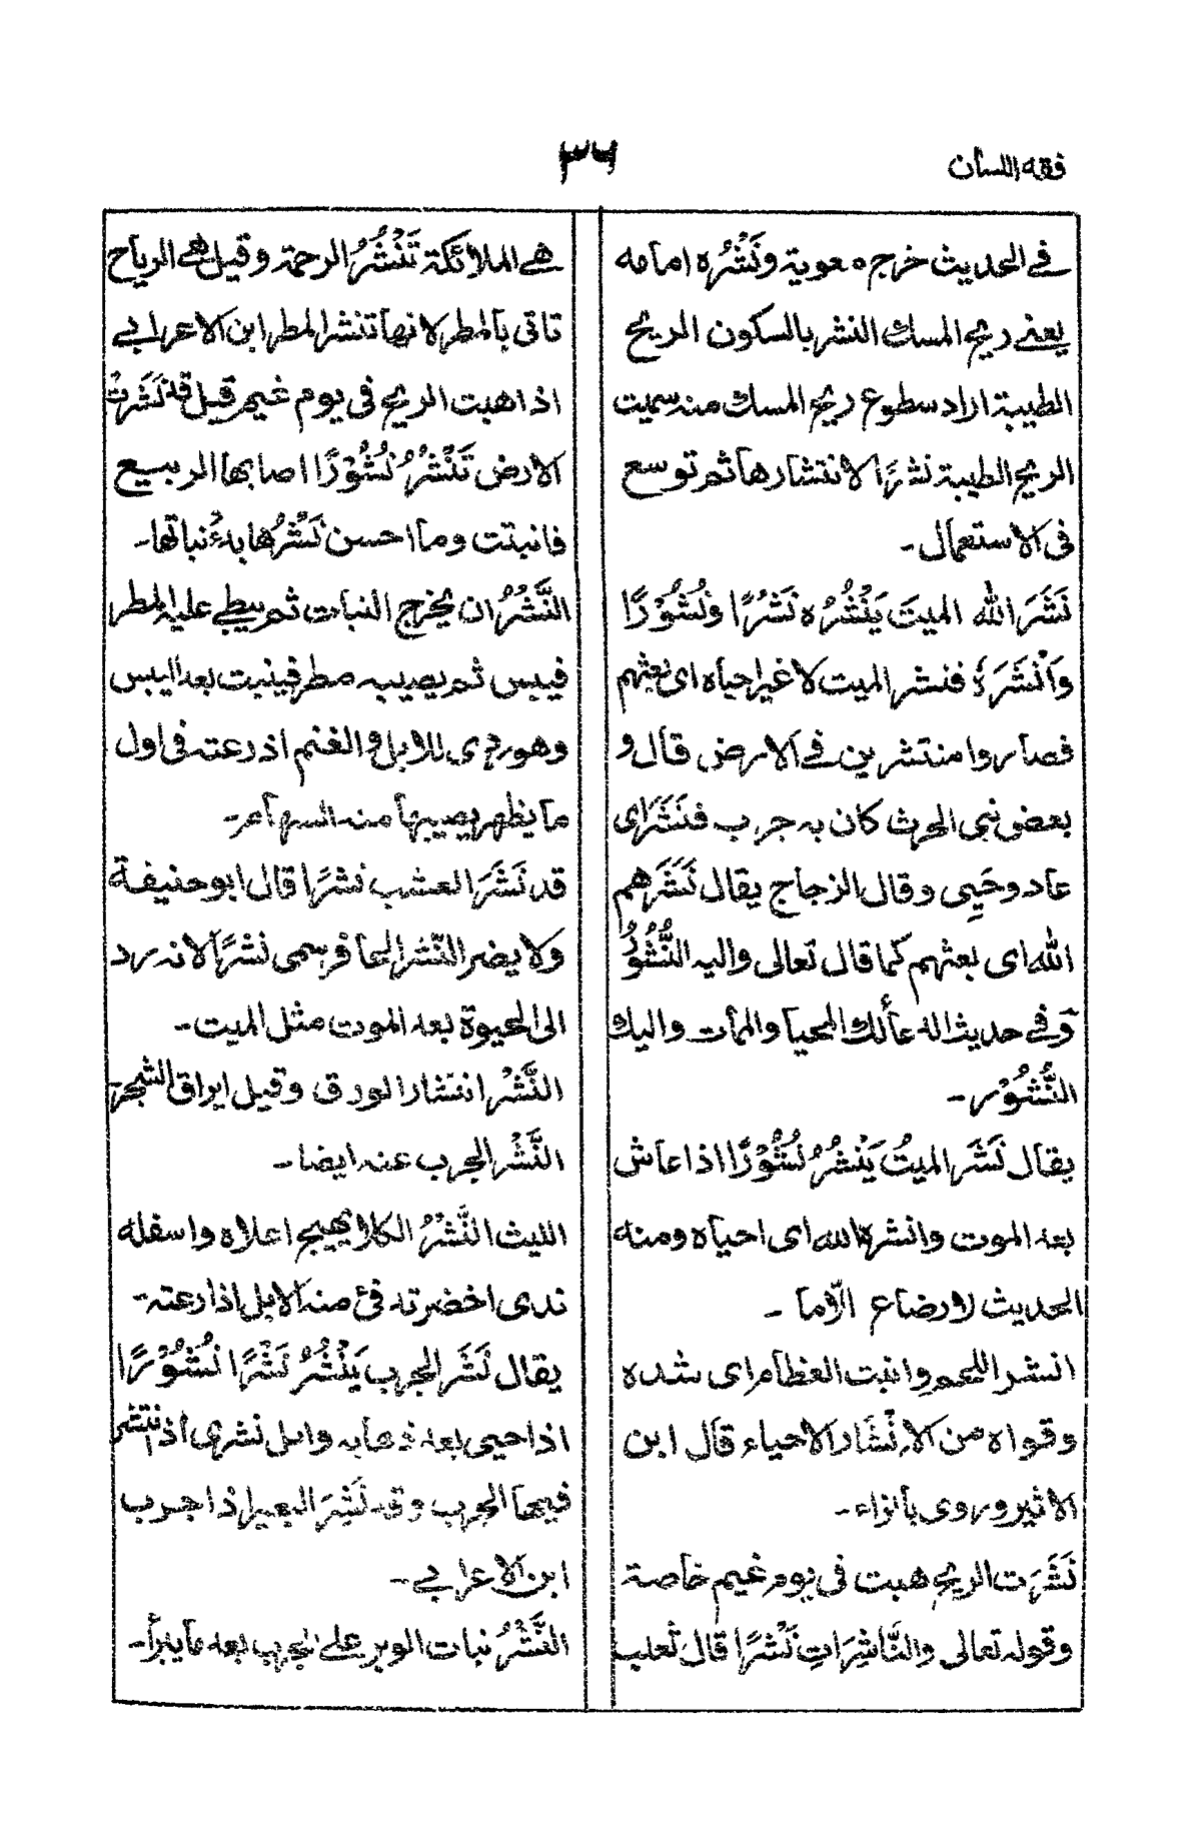 فقه اللسان
۳۶
في الحديث خرج معوية ونَشْرُه امامه
يعني ريح المسك النشر بالسكون الريح
الطيبة اراد سطوع ريح المسك منه سميت
الريح الطيبة نشرًا لانتشارها ثم توسع
فى الاستعمال۔
نَشَرَ الله الميتَ يَنْشُرُه نَشْرًا ونُشُوْرًا
وَاَنْشَرَهٗ فنشر الميت لا غير احياه اى بعثهم
فصاروا منتشرين في الارض قال و
بعض نبى الحرث كان به جرب فنَشَرَاى
عاد وحَيِىَ وقال الزجاج يقال نَشَرَهم
الله اى بعثهم كما قال تعالى واليه النُّشُوْرُ
وفي حديث اله عألك المحيا والممات واليك
النُّشُوْر۔
يقال نَشَرَ الميتُ يَنْشُرُ نُشُوْرًا اذا عاش
بعد الموت وانشره الله اى احياه ومنه
الحديث لا رضاع الّاما۔
انشر اللحم وانبت العظام اى شده
وقواه من الاِنْشَار الاحياء قال ابن
الاثير وروى بالزاء۔
نَشَرَت الريح هبت فى يوم غيم خاصة
وقوله تعالى والنَّاشِرَاتِ نَشْرًا قال ثعلب
هي الملائكة تَنْشُرُ الرحمة وقيل هي الرياح
تاتى بالمطر لانها تنشر المطر ابن الاعرابي
اذا هبت الريح فى يوم غيم قيل قد نَشَرَت
الارض تَنْشُرُ نُشُوْرًا اصابها الربيع
فانبتت وما احسن نَشْرُها بدءُ نباتها۔
النَّشْرُ ان يخرج النبات ثم يبطي عليه المطر
فييس ثم يصيبه مطر فينبت بعد اليبس
وهو ردى للابل والغنم اذ رعته فى اول
ما يظهر يصيبها منه السهام۔
قد نَشَرَ العشب نشرًا قال ابو حنيفة
ولا يضر النّشر الحافر سمى نشرًا لانه رد
الى الحيوة بعد الموت مثل الميت۔
النَّشْر انتشار الورق وقيل ايراق الشجر
النَّشْر الجرب عنه ايضا۔
الليث النَّشْرُ الكلا يهيج اعلاه واسفله
ندى اخضر تد فئ منه الابل اذا رعته۔
يقال نَشَر الجرب يَنْشُرُ نَشْرًا نُشُوْرًا
اذا حيى بعد ذهابه وابل نشرى اذا انتشر
فيها الجرب وقد نَشِرَ البعير اذا جرب
ابن الاعرابي۔
النَّشْرُ نبات الوبر على الجرب بعد ما يبرأ۔